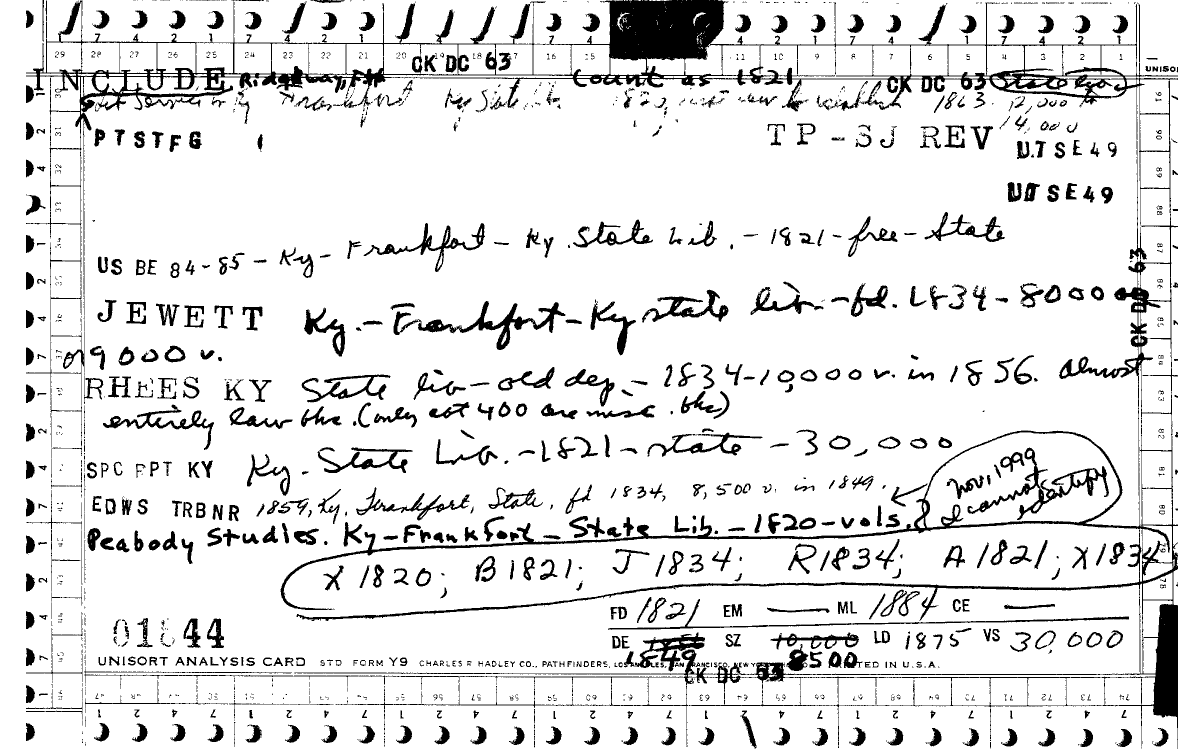 CK DC 63
INCLUDE Ridgway, FHA Count as 1821 CK DC 63 State Gov
in Ky Frankfort Ky State Lib. 1820, establish 1863 12,000 to
14,000
PTSTFG 1 TP-SJ REV UT SE49
UT SE49
US BE 84-85 - Ky - Frankfort - Ky. State Lib. - 1821 - free - State
CK DC 63
JEWETT Ky. - Frankfort - Ky state lib. - fd. 1834 - 8000
or 9000 v.
RHEES KY State lib - old dep. - 1834 - 10,000 v. in 1856. almost
entirely law bks. (only abt 400 are misc. bks)
SPC RPT KY Ky. State Lib. - 1821 - state - 30,000
EDWS TRBNR 1859, Ky, Frankfort, State, fd 1834, 8,500 v. in 1849.
Nov, 1999
I cannot
identify
Peabody Studies. Ky - Frankfort - State Lib. - 1820 - vols. ?
X 1820; B 1821; J 1834; R 1834; A 1821; X 1834
FD 1821 EM — ML 1884 CE —
01844
DE 1856 SZ 10,000 LD 1875 VS 30,000
1849 8500
UNISORT ANALYSIS CARD STD FORM Y9 CHARLES R HADLEY CO., PATHFINDERS, LOS ANGELES, SAN FRANCISCO, NEW YORK PRINTED IN U.S.A.
CK DC 63